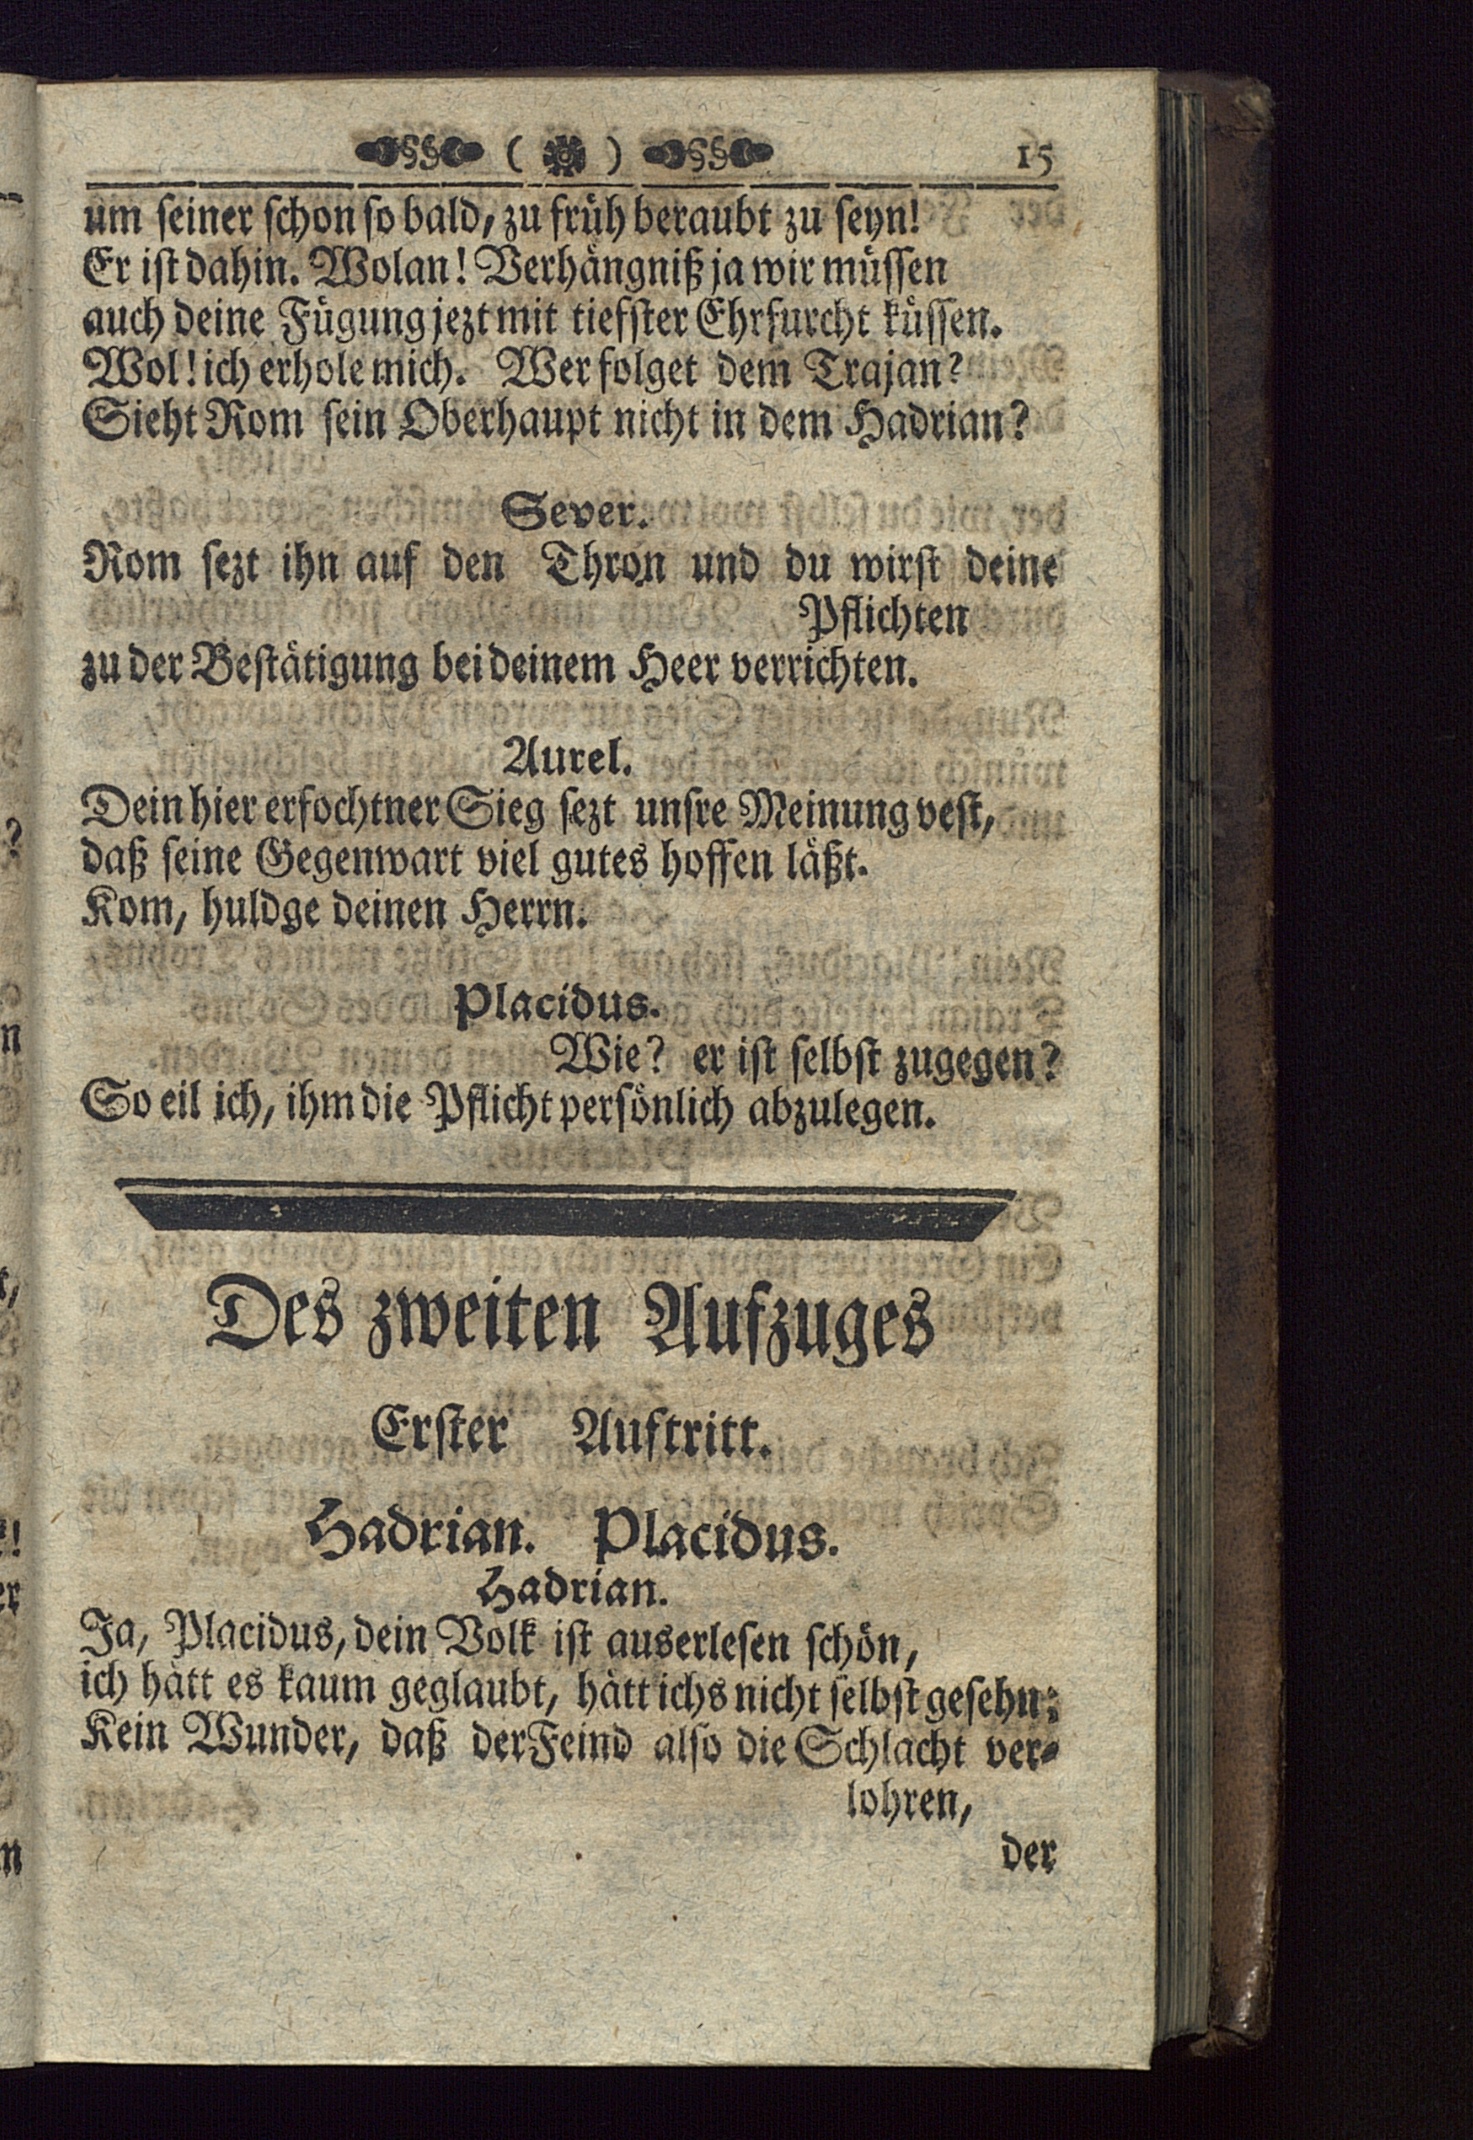 ( ) 15
um seiner schon so bald, zu früh beraubt zu seyn!
Er ist dahin. Wolan! Verhängniß ja wir müssen
auch deine Fügung jezt mit tiefster Ehrfurcht küssen.
Wol! ich erhole mich. Wer folget dem Trajan?
Sieht Rom sein Oberhaupt nicht in dem Hadrian?
Sever.
Rom sezt ihn auf den Thron und du wirst deine
Pflichten
zu der Bestätigung bei deinem Heer verrichten.
Aurel.
Dein hier erfochtner Sieg sezt unsre Meinung vest,
daß seine Gegenwart viel gutes hoffen läßt.
Kom, huldge deinen Herrn.
Placidus.
Wie? er ist selbst zugegen?
So eil ich, ihm die Pflicht persönlich abzulegen.
Des zweiten Aufzuges
Erster Auftritt.
Hadrian. Placidus.
Hadrian.
Ja, Placidus, dein Volk ist auserlesen schön,
ich hätt es kaum geglaubt, hätt ichs nicht selbst gesehn:
Kein Wunder, daß der Feind also die Schlacht ver-
lohren,
der